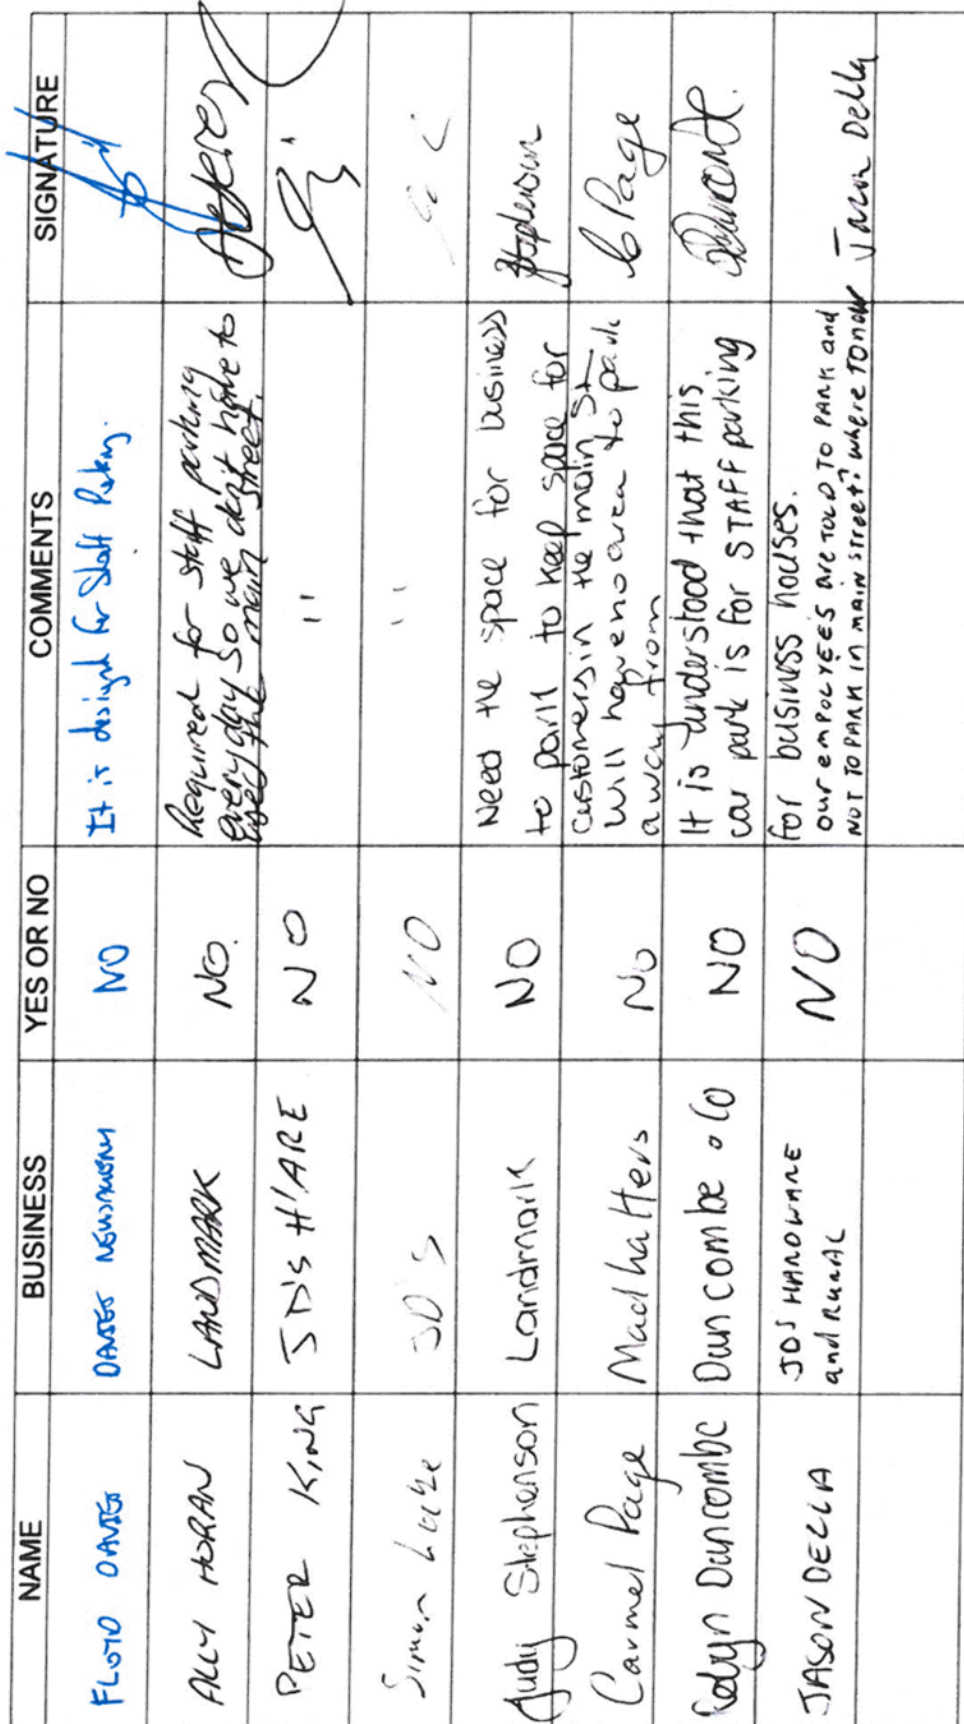 NAME BUSINESS YES OR NO COMMENTS SIGNATURE
FLOYD DAVIES DAVIES NEWSAGENCY NO It is designed for Staff Parking.
ALLY HORAN LANDMARK NO. Required for staff parking
every day so we don't have to
use the main street.
PETER KING JD'S H'ARE NO "
Simon JD'S NO "
Judy Stephenson Landmark NO Need the space for business
to park to keep space for
Carmel Page Madhatters No customers in the main St
will have no area to park
away from
C Page
Robyn Duncombe Duncombe & Co NO It is understood that this
car park is for STAFF parking
for business houses.
JASON DELLA JDS HARDWARE
and RURAL NO our EMPOLYEES are TOLD TO PARK and
NOT TO PARK IN MAIN STREET? where TO now Jason Della